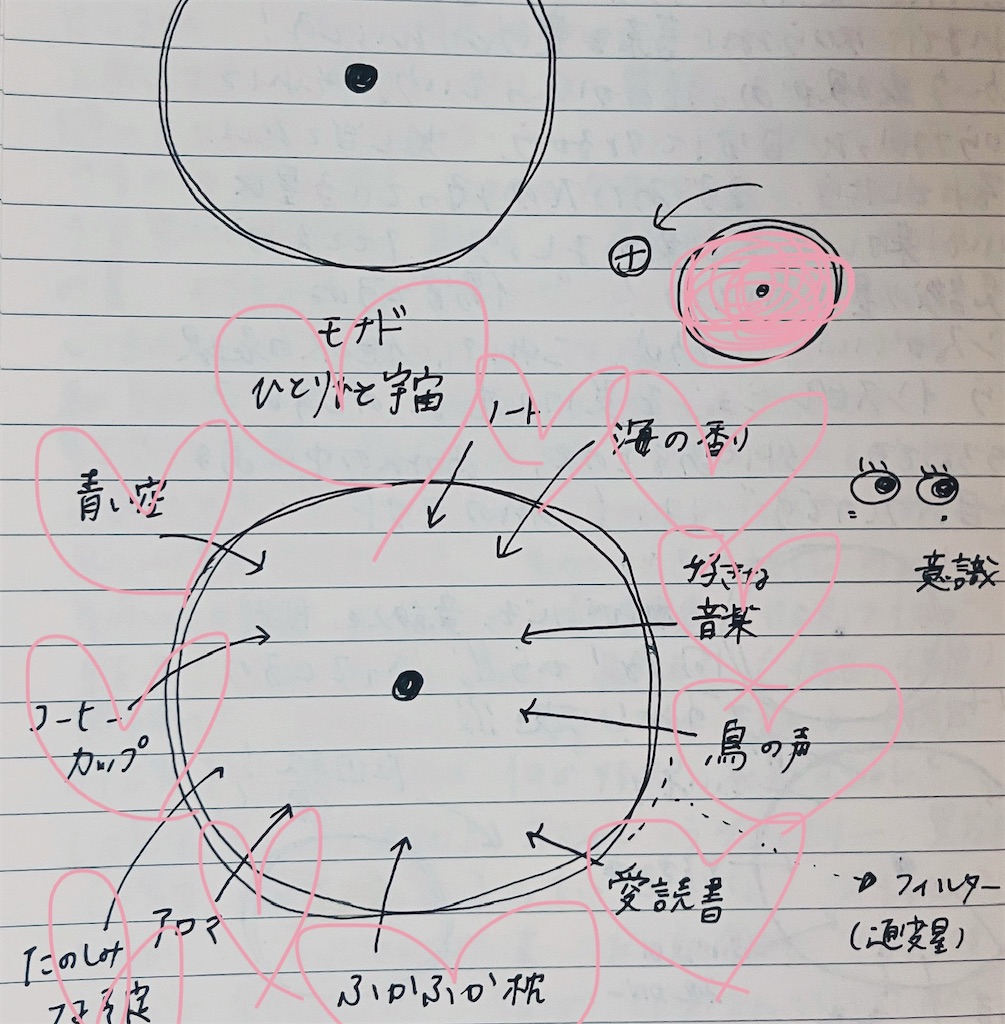 土
モナド
ひとりひと宇宙
ノート
海の香り
青い空
意識
好きな
音楽
コーヒー
カップ
鳥の声
愛読書
フィルター
(通変星)
アロマ
たのしみ
ふかふか枕